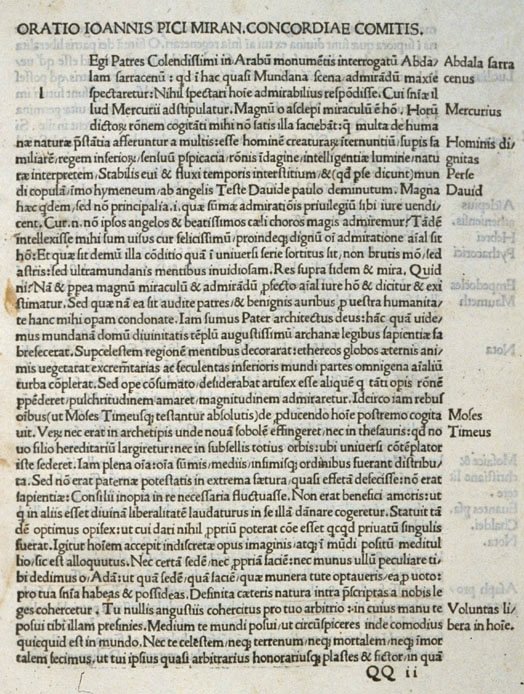 ORATIO IOANNIS PICI MIRAN. CONCORDIAE COMITIS.
lEgi Patres Colendissimi in Arabũ monumẽtis interrogatũ Abda/ Abdala sarra
lam sarracenũ: qd ĩ hac quasi Mundana scena/admirãdũ maxie cenus
spectaretur: Nihil spectari hoie admirabilius respõdisse. Cui sniæ il
lud Mercurii adstipulatur. Magnũ o asclepi miraculũ ẽ hõ. Horũ Mercurius
dictorꝝ rõnem cogitãti mihi nõ satis illa faciebãt: ꝙ multa de huma
næ naturæ p̃stãtia afferuntur a multis: esse hominẽ creaturarꝝ iternuntiũ/supis fa Hominis di
miliarẽ/regem inferiorꝝ/sensuũ pspicacia/rõnis ĩdagine/intelligẽtiæ lumine/natu gnitas
ræ interpretem/Stabilis eui & fluxi temporis interstitium/&(qd p̃se dicunt) mun Perse
di copulã/imo hymeneum/ab angelis Teste Dauide paulo deminutum. Magna Dauid
hæc qdem/sed nõ principalia.i. quæ sũmæ admiratiõis priuilegiũ sibi iure uendi/
cent. Cur.n. nõ ipsos angelos & beatissimos cæli choros magis admiremur? Tãdẽ
intellexisse mihi sum uisus cur felicissimũ/proindeqꝫ dignũ oi admiratione aial sit
hõ: Et quæ sit demũ illa cõditio quã ĩ uniuersi serie sortitus sit/non brutis mõ/sed
astris: sed ultramundanis mentibus inuidiosam. Res supra fidem & mira. Quid
ni? Nã & ppea magnũ miraculũ & admirãdũ pfecto aial iure hõ & dicitur & exi
stimatur. Sed quæ nã ea sit audite patres/& benignis auribus p uestra humanita/
te hanc mihi opam condonate. Iam sumus Pater architectus deus: hãc quã uide/
mus mundanã domũ diuinitatis tẽplũ augustissimũ archanæ legibus sapientiæ fa
brefecerat. Supcelestem regionẽ mentibus decorarat: ethereos globos æternis ani/
mis uegetarat excremẽtarias ac feculentas inferioris mundi partes omnigena aialiũ
turba cõplerat. Sed ope cõsumato/desiderabat artifex esse aliquẽ q tãti opis rõnẽ
ppẽderet/pulchritudinem amaret/magnitudinem admiraretur. Idcirco iam rebus
oibus (ut Moses Timeusqꝫ testantur absolutis) de pducendo hoie postremo cogita Moses
uit. Verꝝ nec erat in archetipis unde nouã sobolẽ effingeret/nec in thesauris: qd no Timeus
uo filio hereditariũ largiretur: nec in subselliis totius orbis: ubi uniuersi cõtẽplator
iste sederet. Iam plena oia: oia sũmis/mediis/infimisqꝫ ordinibus fuerant distribu/
ta. Sed nõ erat paternæ potestatis in extrema fætura/quasi effetã defecisse: nõ erat
sapientiæ: Consilii inopia in re necessaria fluctuasse. Non erat benefici amoris: ut
q in aliis esset diuinã liberalitatẽ laudaturus in se illã dãnare cogeretur. Statuit tã
dẽ optimus opifex: ut cui dari nihil ppriũ poterat cõe esset qcqd priuatũ singulis
fuerat. Igitur hoiem accepit indiscretæ opus imaginis/atqꝫ ĩ mũdi positũ meditul
lio/sic est alloquutus. Nec certã sedẽ/nec ppriã faciẽ: nec munus ullũ peculiare ti/
bi dedimus o/Adã: ut quã sedẽ/quã faciẽ/quæ munera tute optaueris/ea p uoto:
pro tua snĩa habeas & possideas. Definita cæteris natura intra p̃scriptas a nobis le
ges cohercetur. Tu nullis angustiis cohercitus pro tuo arbitrio: in cuius manu te Voluntas li/
posui tibi illam prefinies. Medium te mundi posui/ut circũspiceres inde comodius bera in hoie.
quicquid est in mundo. Nec te celẽstem/neqꝫ terrenum/neqꝫ mortalem/neqꝫ ĩmor
talem fecimus/ut tui ipsius quasi arbitrarius honorariusqꝫ plastes & fictor/in quã
QQ ii